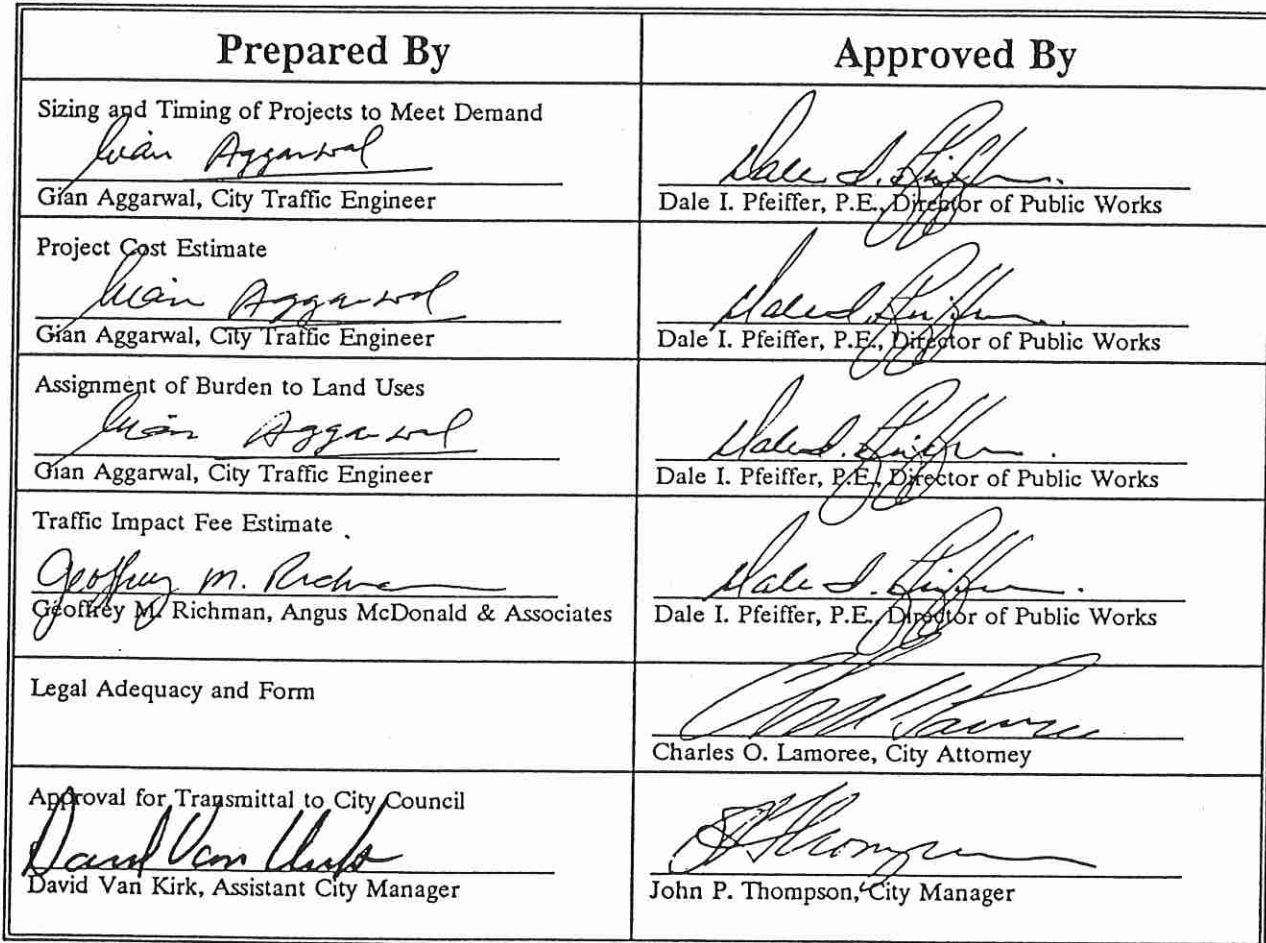 Prepared By
Approved By
Sizing and Timing of Projects to Meet Demand
Gian Aggarwal
Gian Aggarwal, City Traffic Engineer
Dale I. Pfeiffer
Dale I. Pfeiffer, P.E., Director of Public Works
Project Cost Estimate
Gian Aggarwal
Gian Aggarwal, City Traffic Engineer
Dale I. Pfeiffer
Dale I. Pfeiffer, P.E., Director of Public Works
Assignment of Burden to Land Uses
Gian Aggarwal
Gian Aggarwal, City Traffic Engineer
Dale I. Pfeiffer
Dale I. Pfeiffer, P.E., Director of Public Works
Traffic Impact Fee Estimate
Geoffrey M. Richman
Geoffrey M. Richman, Angus McDonald & Associates
Dale I. Pfeiffer
Dale I. Pfeiffer, P.E., Director of Public Works
Legal Adequacy and Form
Charles O. Lamoree, City Attorney
Approval for Transmittal to City Council
David Van Kirk
David Van Kirk, Assistant City Manager
John P. Thompson, City Manager